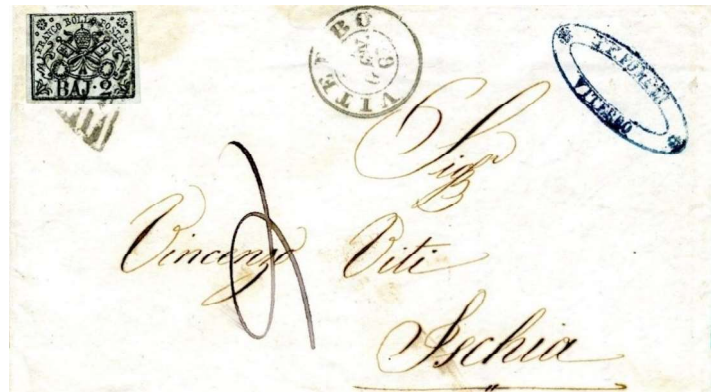 FRANCO BOLLO POSTALE
BAJ. 2
VITERBO
VITERBO
Sigr
Vincenzo Viti
Ischia